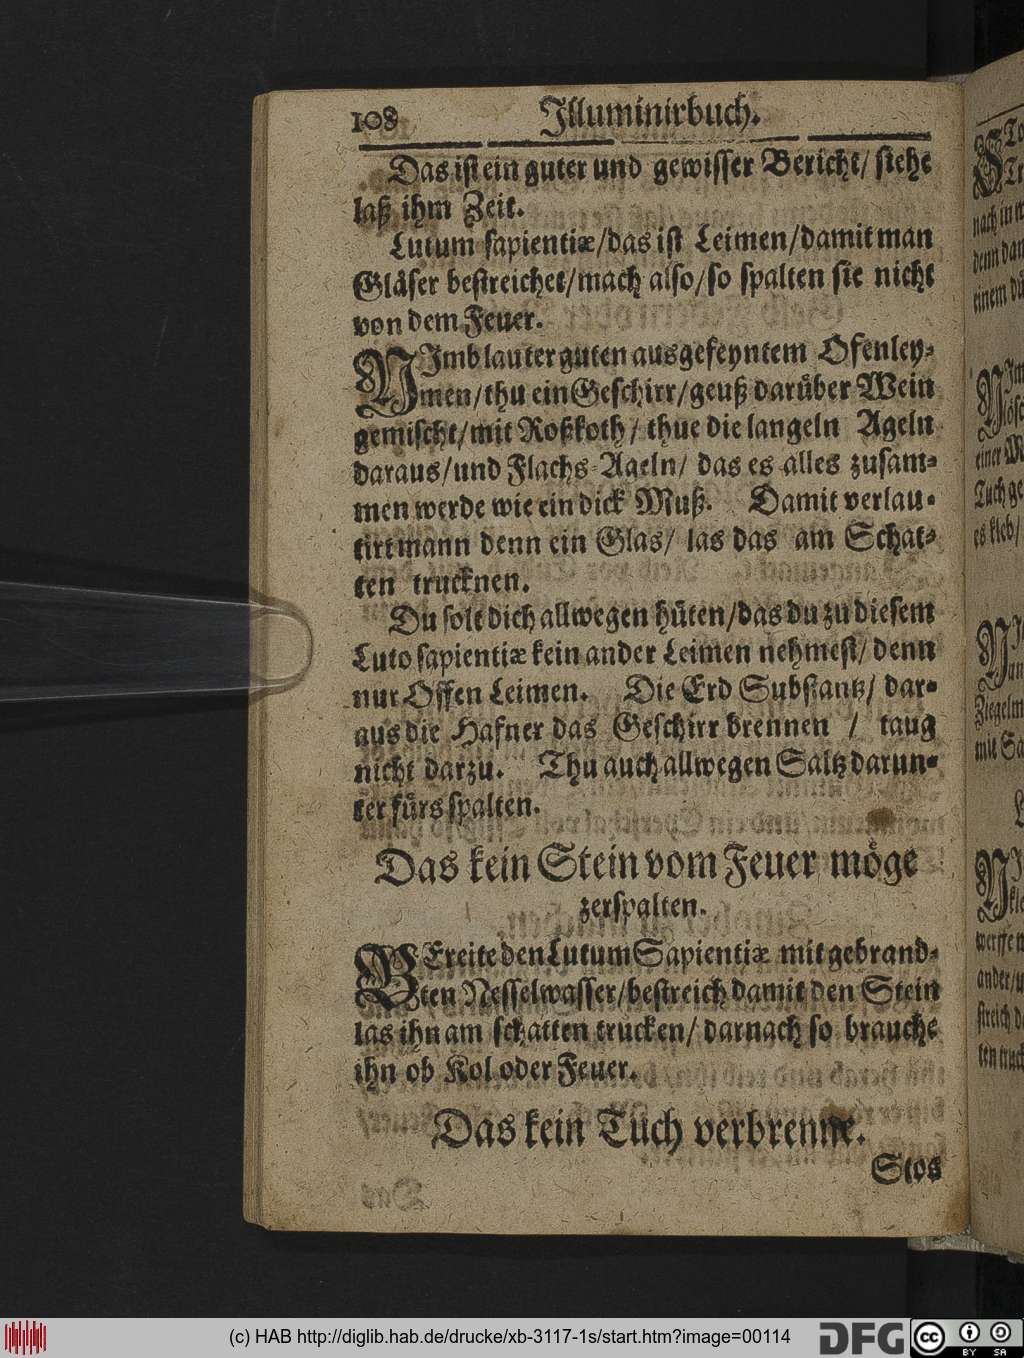 108 Illuminirbuch.
Das ist ein guter und gewisser Bericht/ siehe
laß ihm Zeit.
Lutum sapientiæ/das ist Leimen/damit man
Gläser bestreichet/mach also/so spalten sie nicht
von dem Feuer.
NImb lauter guten ausgefeyntem Ofenley-
men/thu ein Geschirr/geuß darüber Wein
gemischt/mit Roßkoth/ thue die langeln Ageln
daraus/und Flachs-Ageln/ das es alles zusam-
men werde wie ein dick Muß. Damit verlau-
tirt mann denn ein Glas/ las das am Schat-
ten trucknen.
Du solt dich allwegen hüten/das du zu diesem
Luto sapientiæ kein ander Leimen nehmest/ denn
nur Offen Leimen. Die Erd Substantz/ dar-
aus die Hafner das Geschirr brennen / taug
nicht darzu. Thu auch allwegen Saltz darun-
ter fürs spalten.
Das kein Stein vom Feuer möge
zerspalten.
BEreite den Lutum Sapientiæ mit gebrand-
ten Nesselwasser/bestreich damit den Stein
las ihn am schatten trucken/ darnach so brauche
ihn ob Kol oder Feuer.
Das kein Tuch verbrenne.
Stos
(c) HAB http://diglib.hab.de/drucke/xb-3117-1s/start.htm?image=00114
DFG
CC BY SA